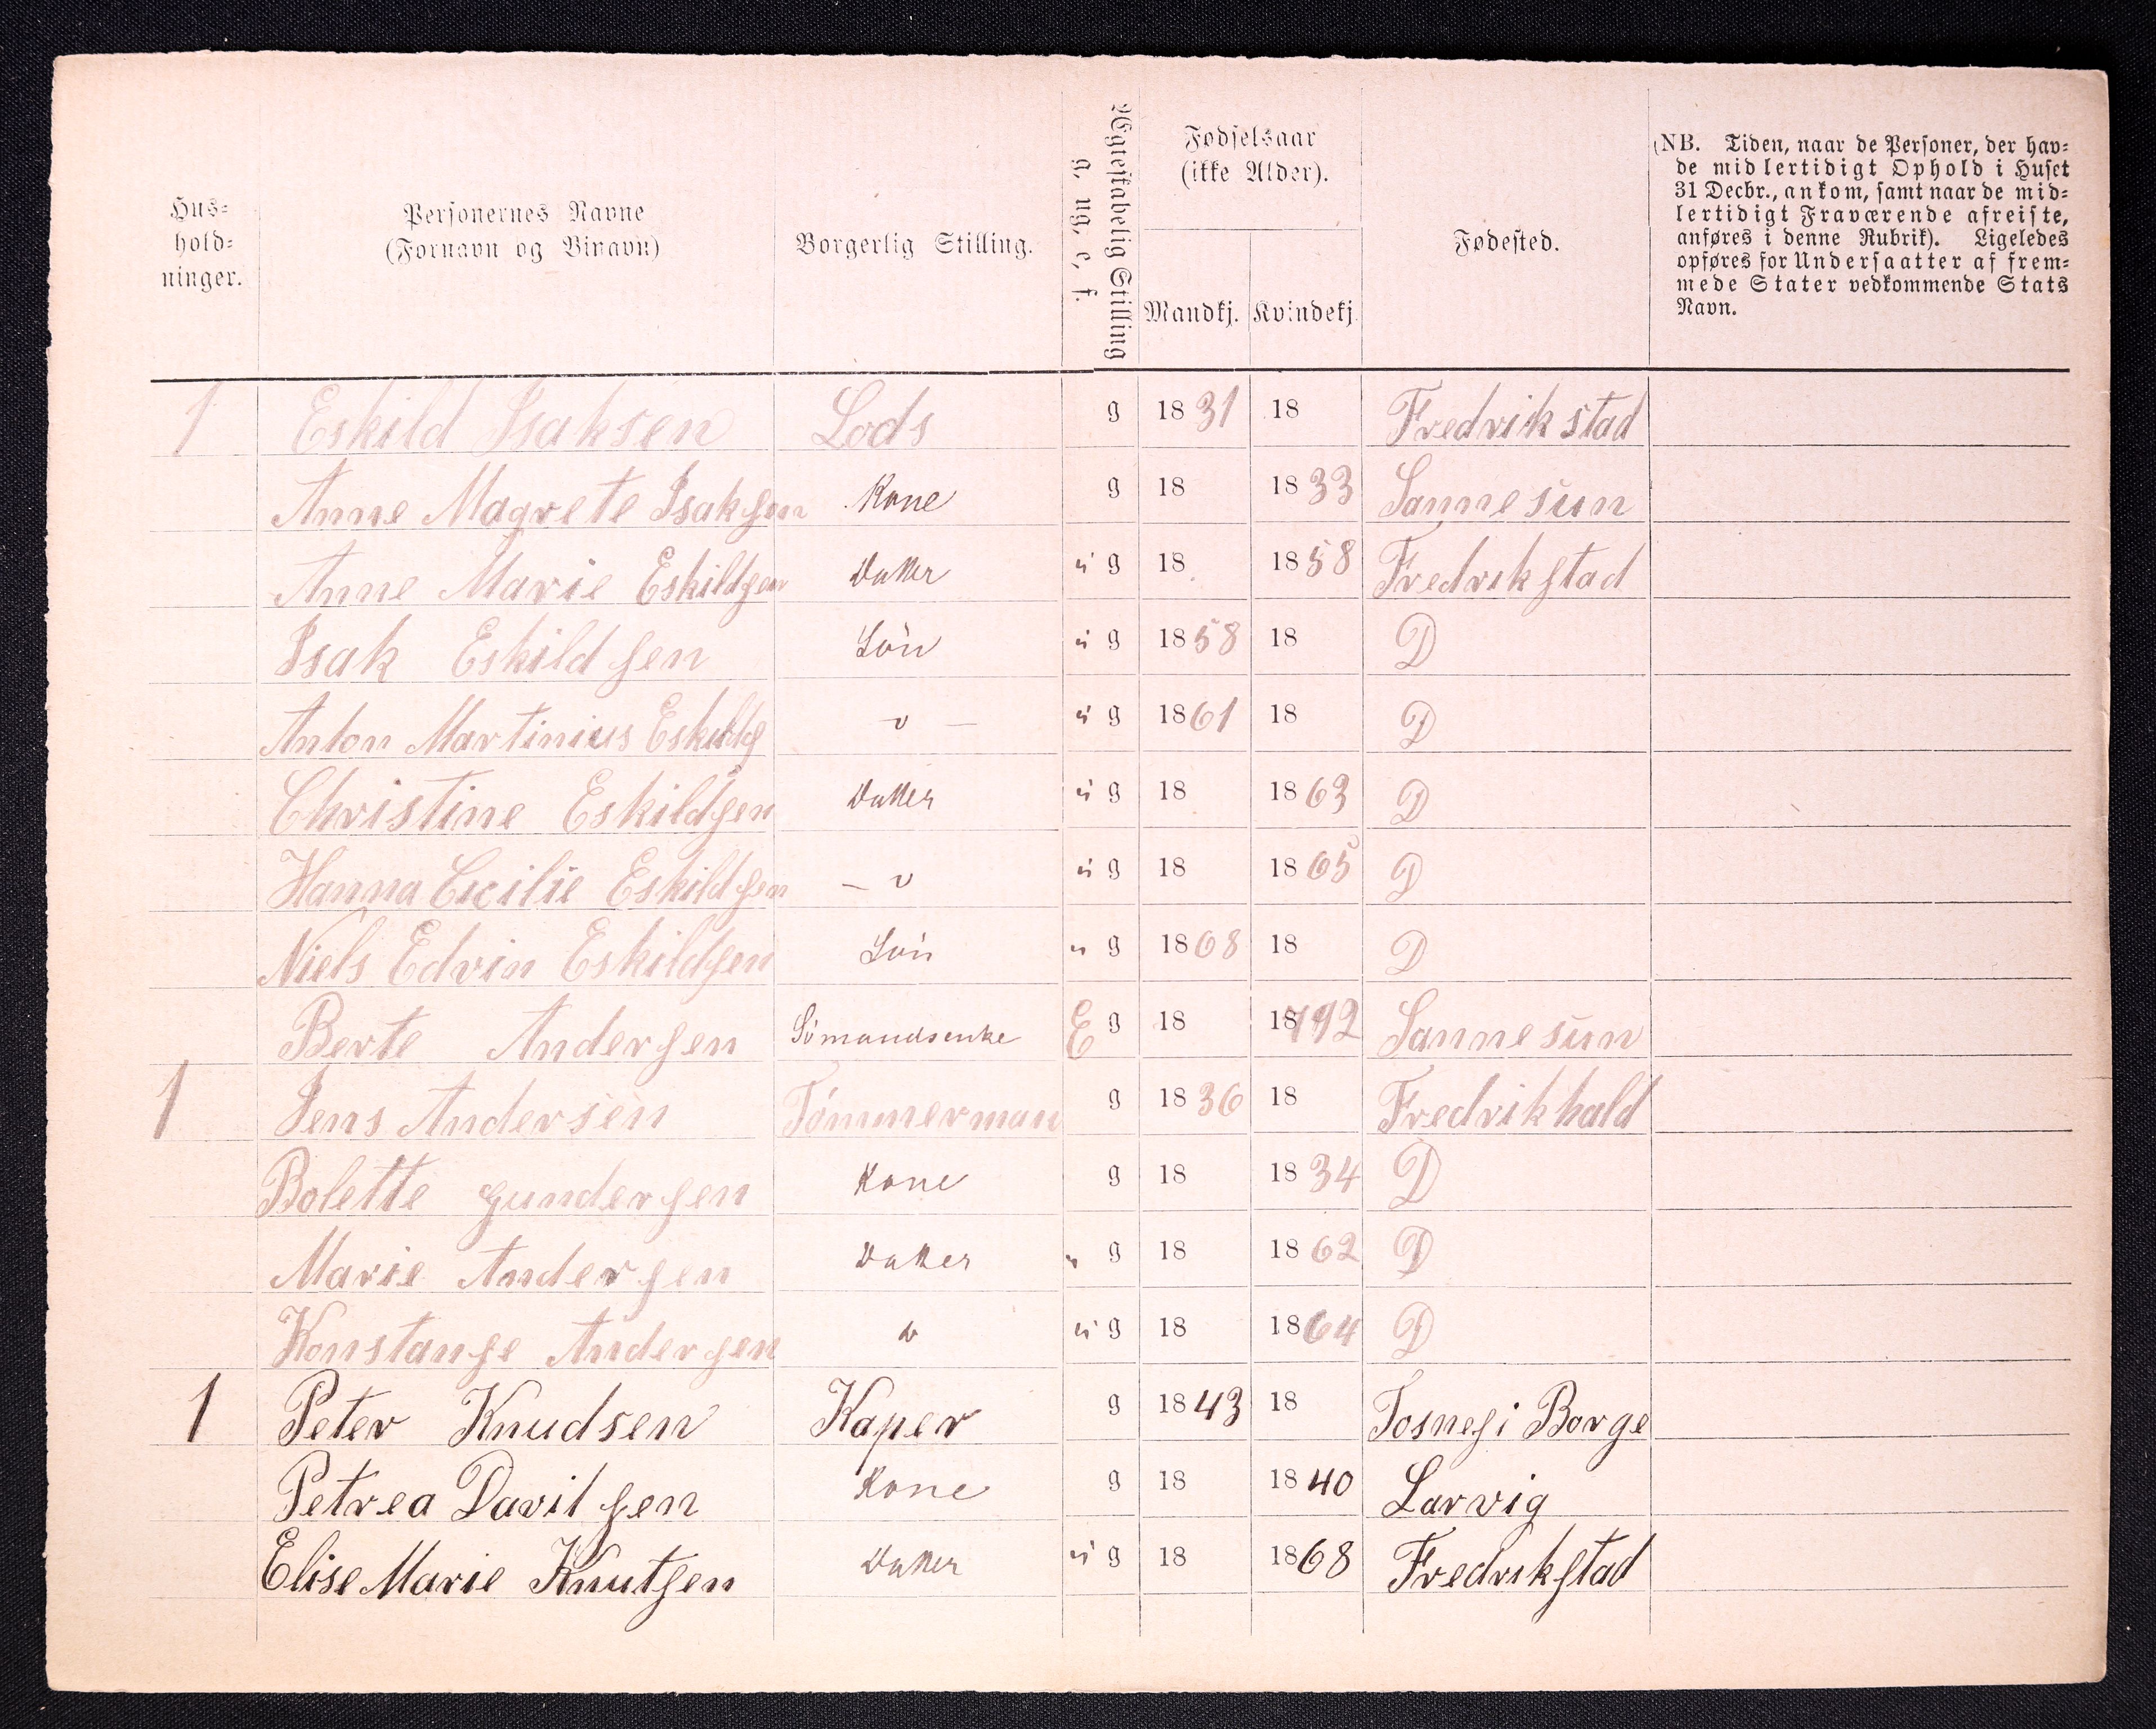 Hus-
hold-
ninger.
Personernes Navne
(Fornavn og Binavn)
Borgerlig Stilling.
Ægteskabelig Stilling
g, ug, e, f.
Fødselsaar
(ikke Alder).
Mandkj. Kvindekj.
Fødested.
(NB. Tiden, naar de Personer, der hav-
de midlertidigt Ophold i Huset
31 Decbr., ankom, samt naar de mid-
lertidigt Fraværende afreiste,
anføres i denne Rubrik). Ligeledes
opføres for Undersaatter af frem-
mede Stater vedkommende Stats
Navn.
1 Eskild Isaksen Lods g 1831 18 Fredrikstad
Anne Magrete Isaksen Kone g 18 1833 Sannesun
Anne Marie Eskildsen Datter u g 18 1858 Fredrikstad
Isak Eskildsen Sön u g 1858 18 D
Anton Martinius Eskilds - v - u g 1861 18 D
Christine Eskildsen Datter u g 18 1863 D
Hanna Cecilie Eskildsen - v u g 18 1865 D
Niels Edvin Eskildsen Sön u g 1868 18 D
Berte Andersen Sömandsenke E g 18 1792 Sannesun
1 Jens Andersen Tömmerman g 1836 18 Fredrikhald
Bolette Gundersen Kone g 18 1834 D
Marie Andersen Datter u g 18 1862 D
Konstanse Andersen v u g 18 1864 D
1 Peter Knudsen Kaper g 1843 18 Tosnes i Borge
Petrea Davitsen Kone g 18 1840 Larvig
Elise Marie Knutsen Datter u g 18 1868 Fredrikstad